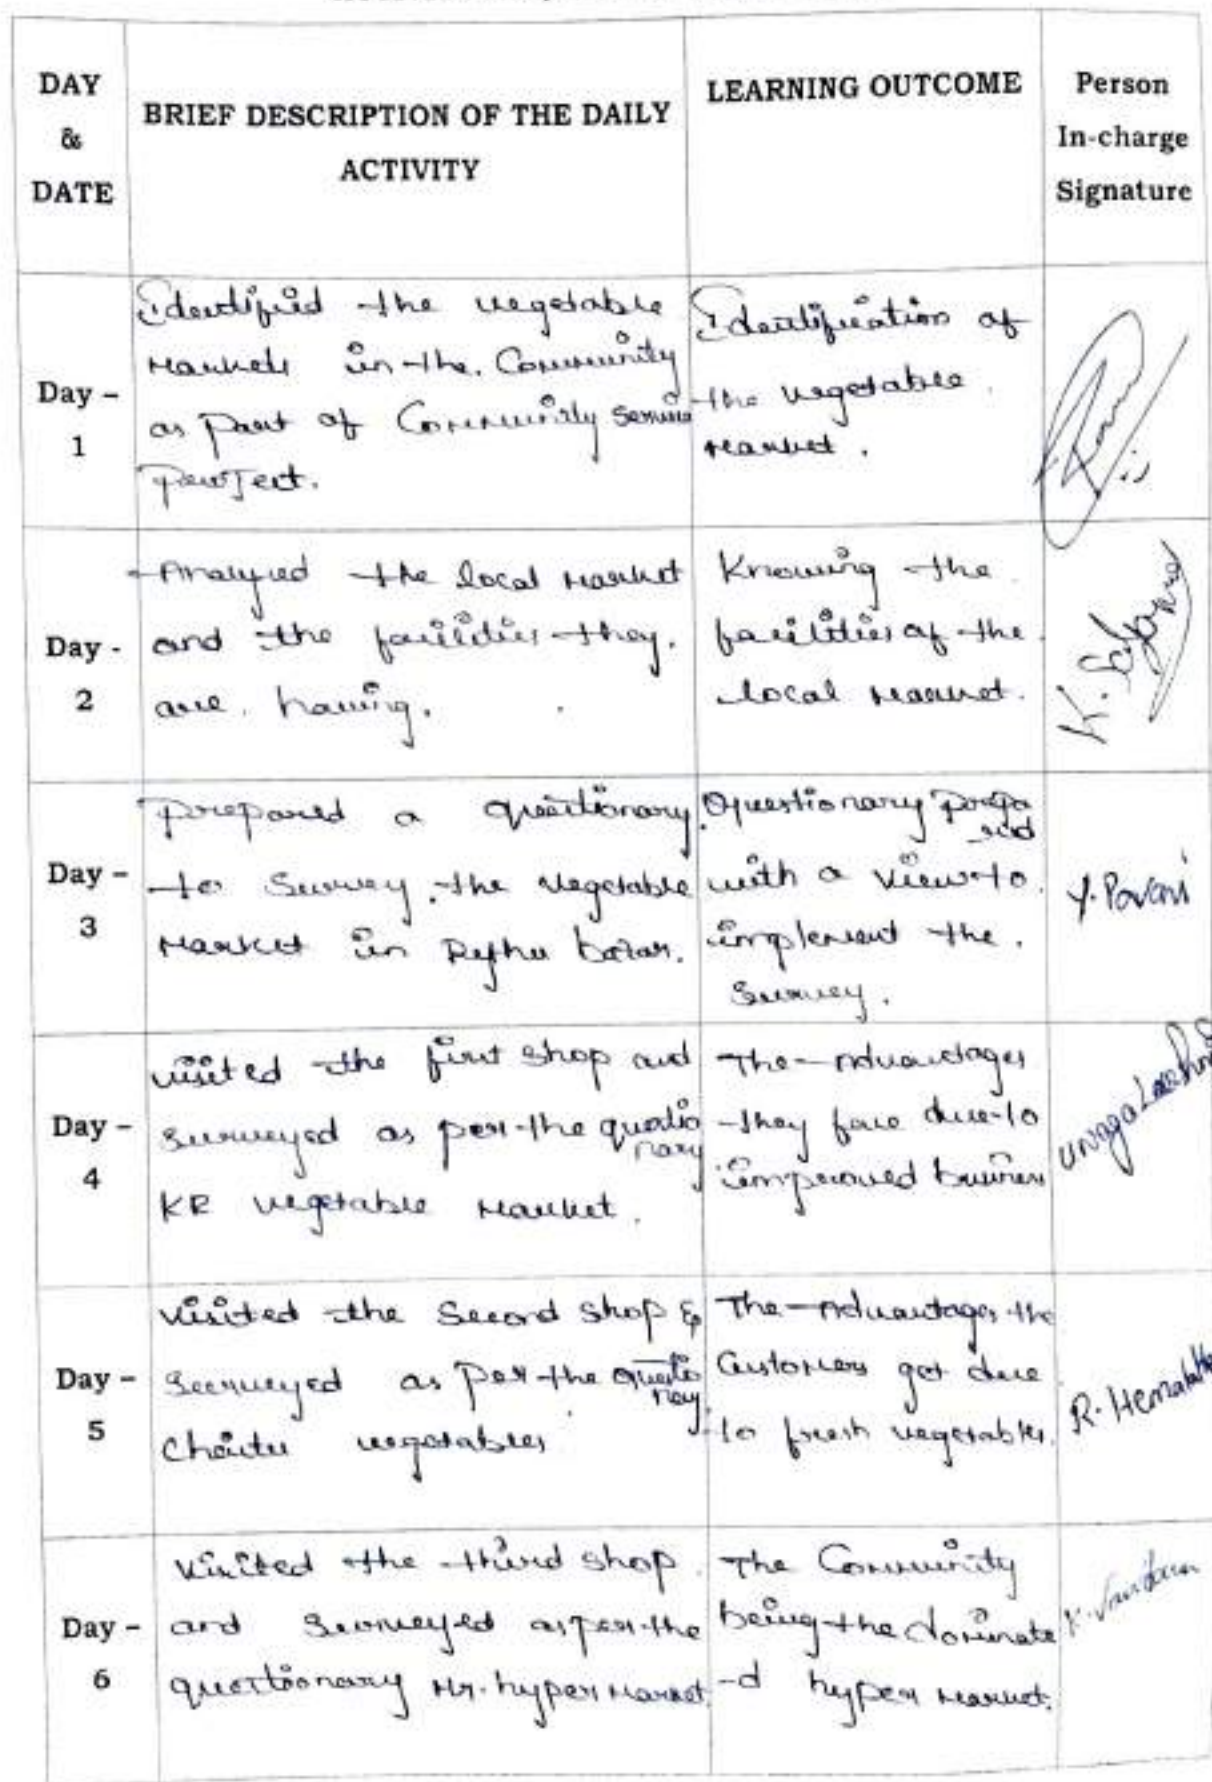 DAY
&
DATE
BRIEF DESCRIPTION OF THE DAILY
ACTIVITY
LEARNING OUTCOME
Person
In-charge
Signature
Day –
1
Identified the vegetable
Markets in the Community
as part of Community Service
project.
Identification of
the vegetable
market.
Day -
2
Analyzed the local market
and the facilities they.
are having.
Knowing the
facilities of the
local market.
Day –
3
prepared a questionary
to Survey the vegetable
Market in Rythu bazar.
Questionary prepa
red
with a view to
implement the
Survey.
Y. Pavani
Day –
4
visited the first shop and
surveyed as per the questio
nary
KR vegetable market.
The Advantages
they face due to
improved business
Day –
5
visited the Second shop &
Surveyed as per the questio
nary
vegetables
The Advantages the
Customers get due
to fresh vegetables.
Day –
6
Visited the third shop
and Surveyed as per the
questionary Mr. hyper market.
The Community
being the dominate
-d hyper market.